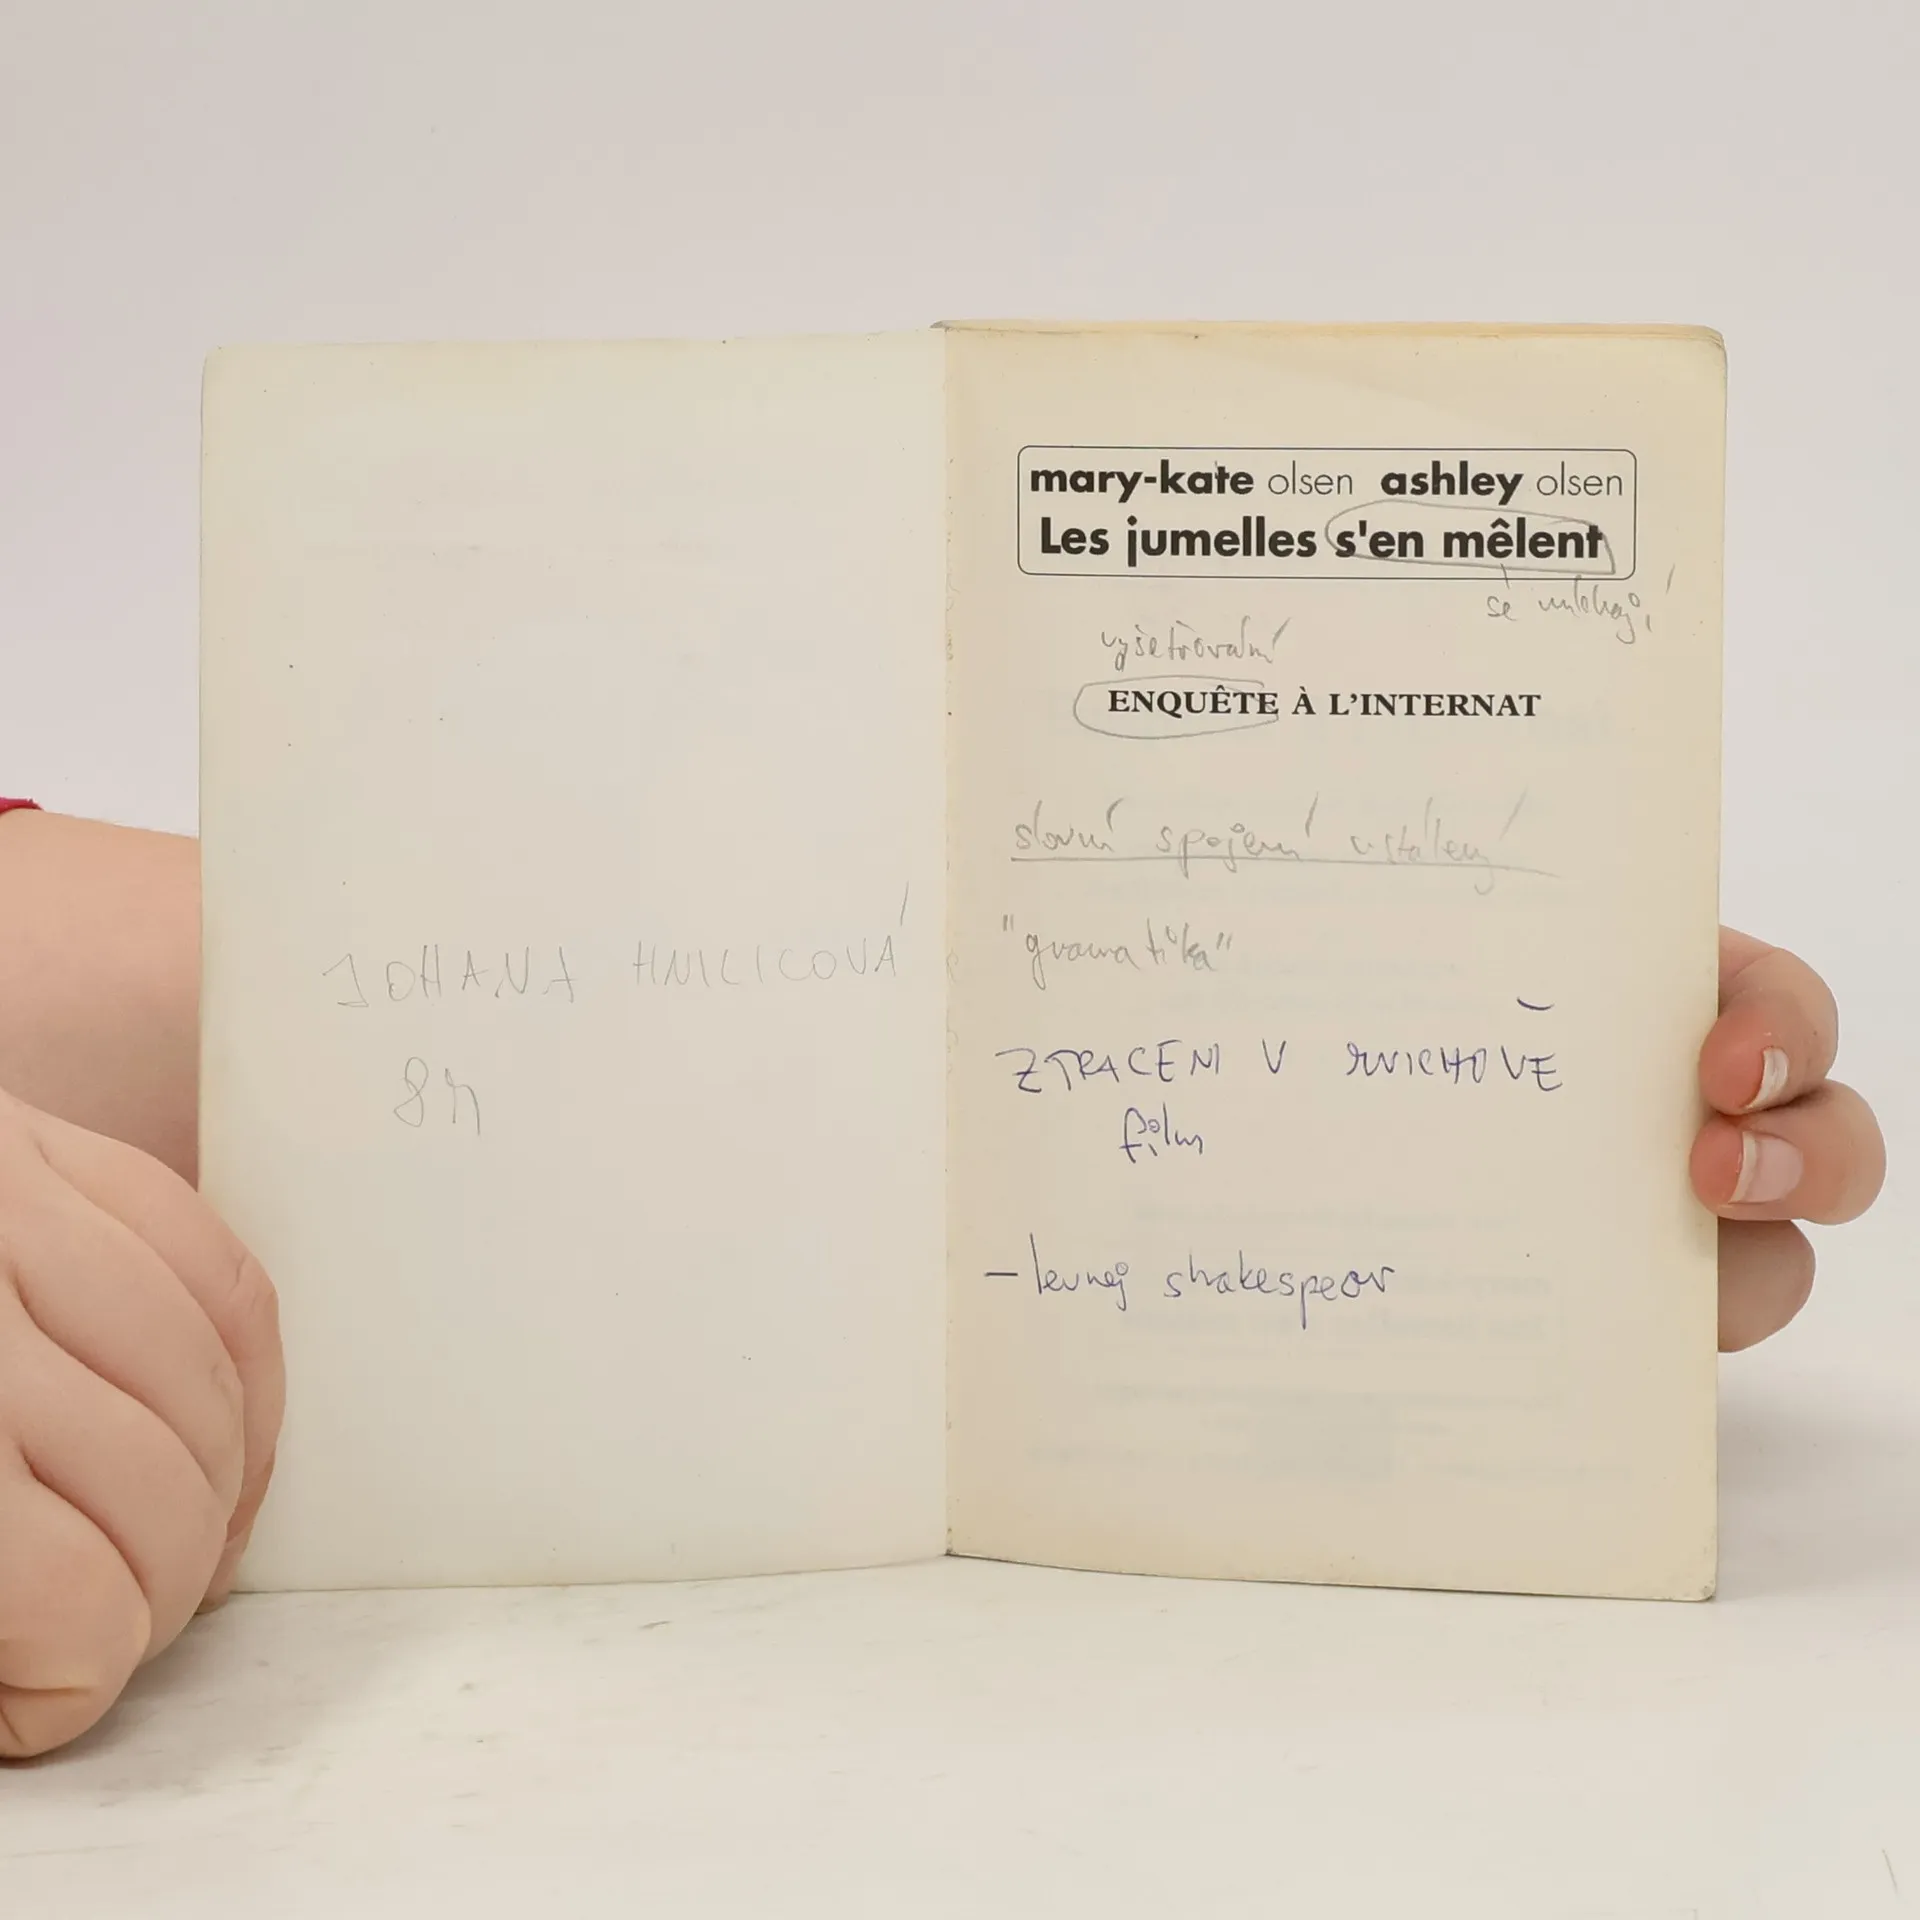 JOHANA HNILICOVÁ
mary-kate olsen ashley olsen
Les jumelles s'en mêlent
se
vyšetřování
ENQUÊTE À L'INTERNAT
slovní spojení ustálený
"gramatika"
ZTRACENI V MNICHOVĚ
film
- levnej shakespear